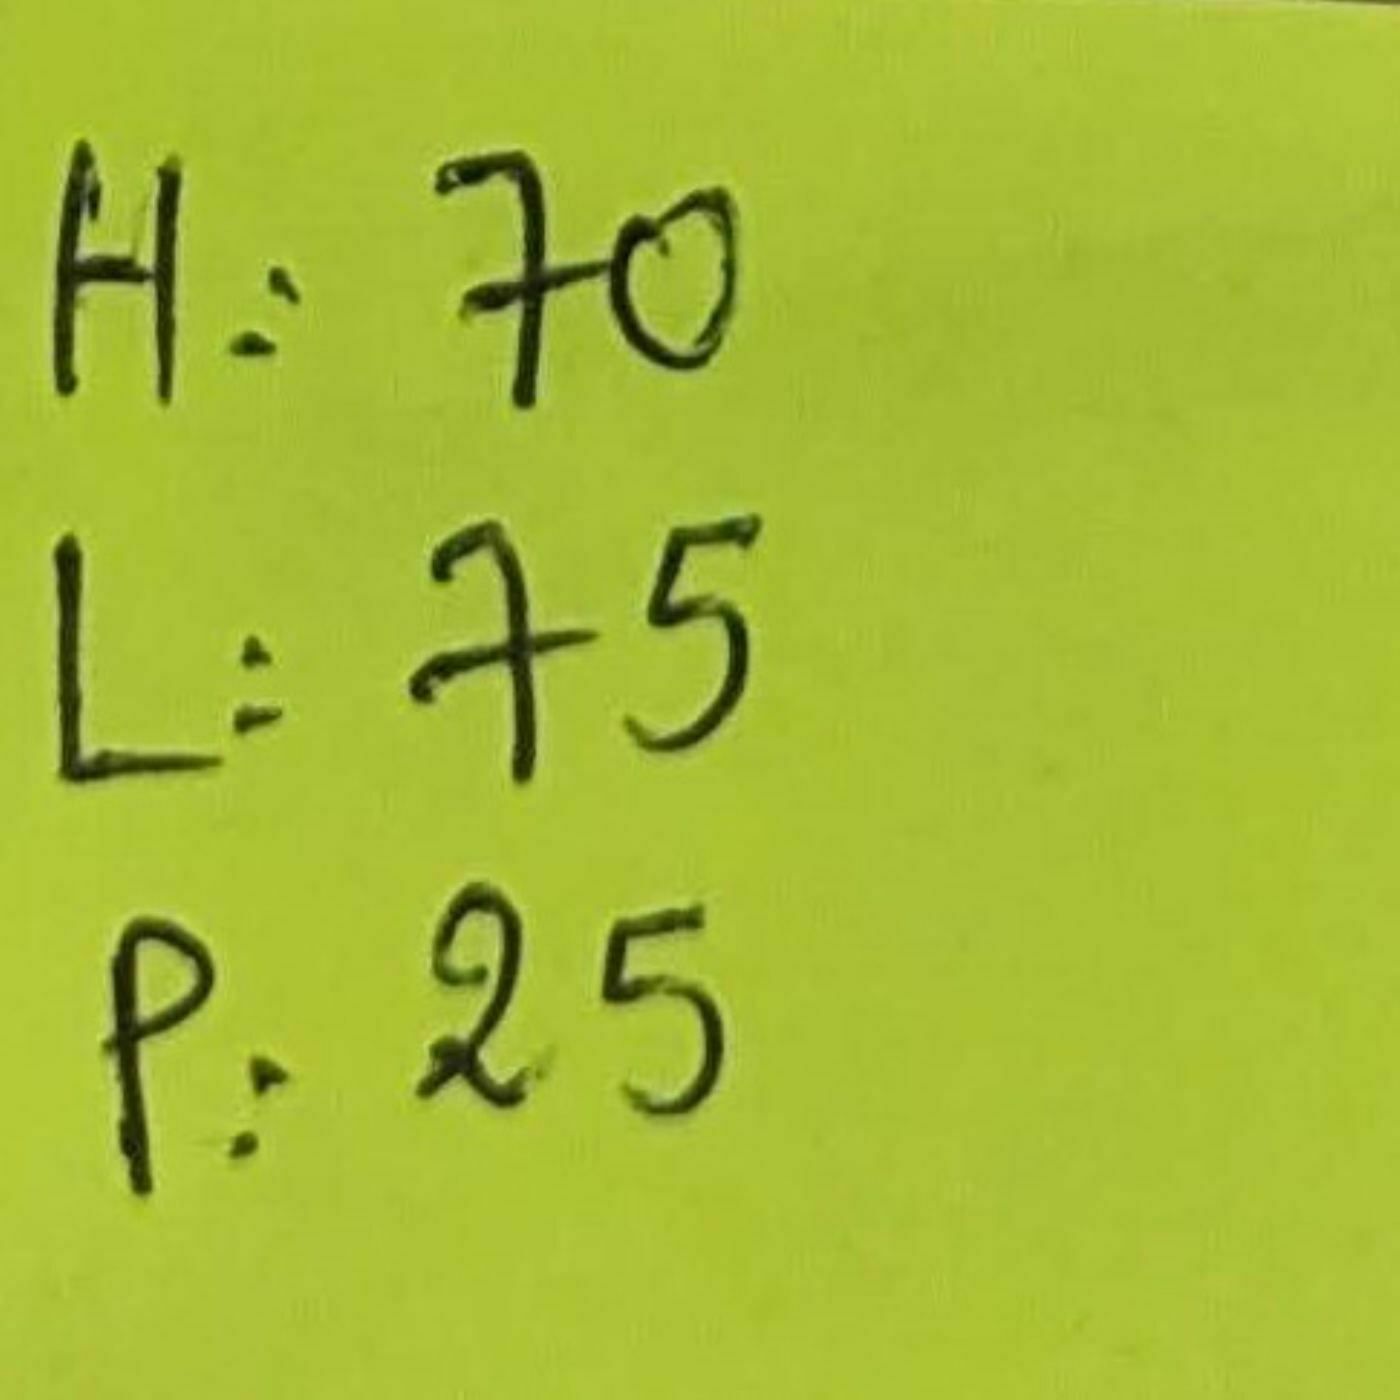 H: 70
L: 75
P: 25